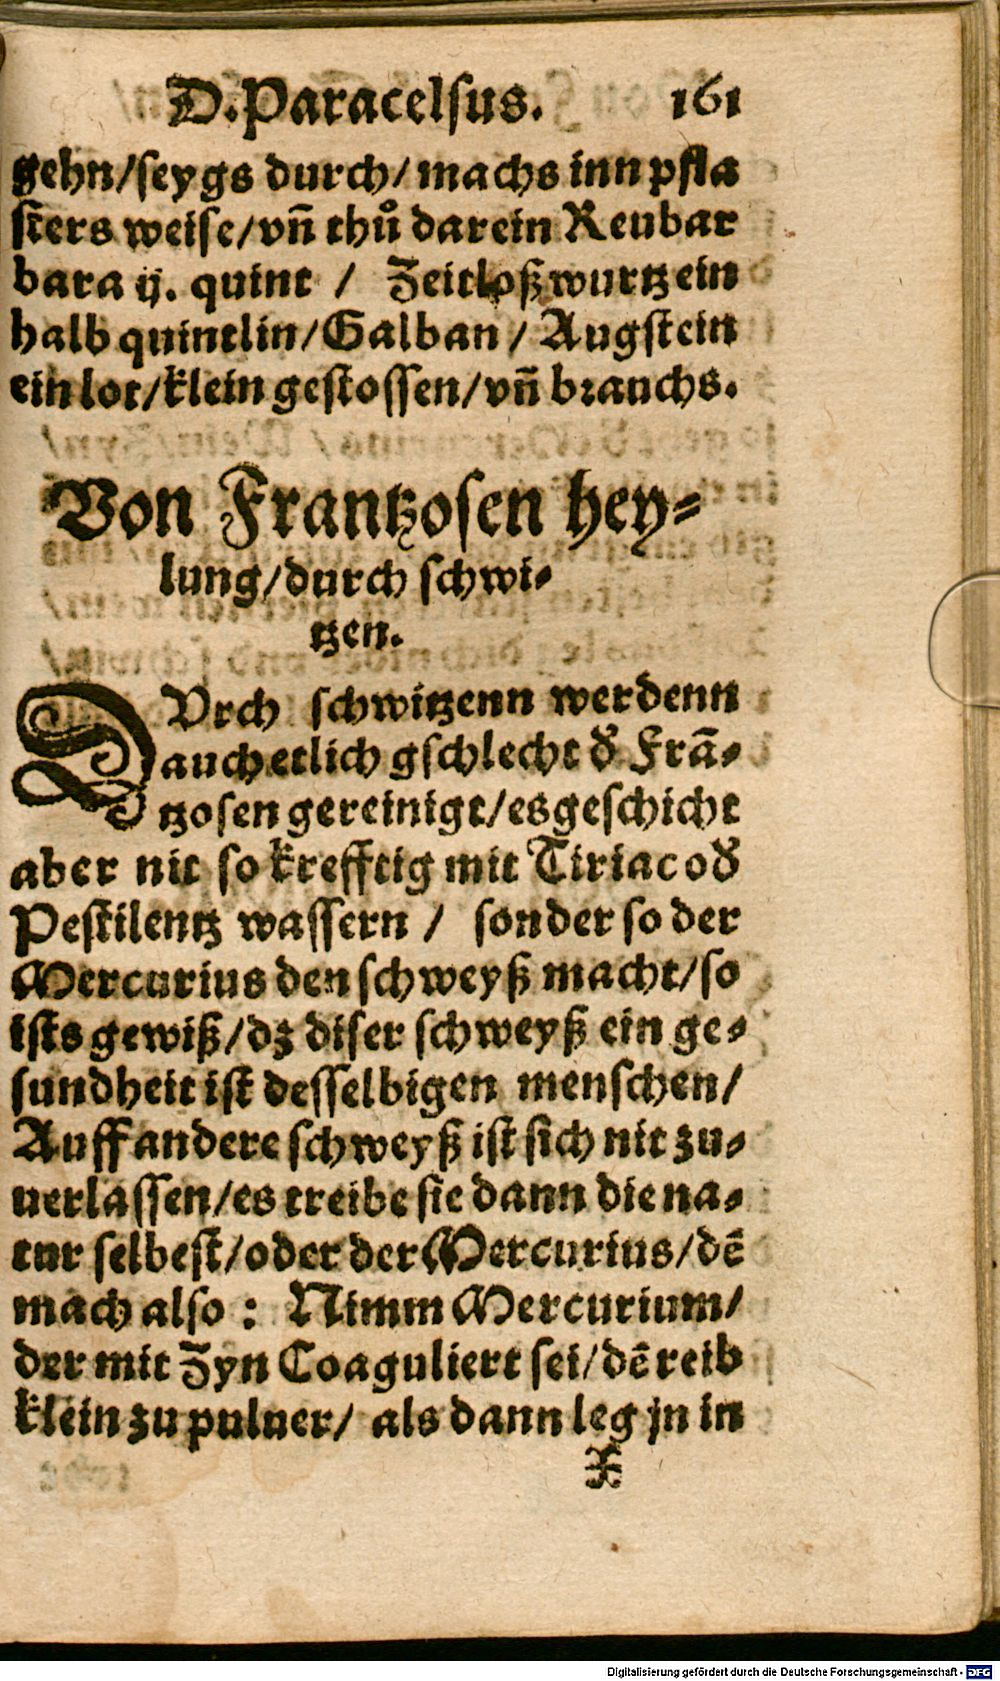 D. Paracelsus. 161
gehn/seygs durch/machs inn pfla
sters weise/vñ thů darein Reubar
bara ij. quint / Zeitloß wurtz ein
halb quintlin/Galban / Augstein
ein lot/klein gestossen/vñ brauchs.
Von Frantzosen hey-
lung/durch schwi-
tzen.
DVrch schwitzenn werdenn
auch etlich gschlecht d̕ Frã-
tzosen gereinigt/es geschicht
aber nit so krefftig mit Tiriac od̕
Pestilentz wassern / sonder so der
Mercurius den schweyß macht/so
ists gewiß/dz diser schweyß ein ge-
sundheit ist desselbigen menschen/
Auff andere schweyß ist sich nit zu-
uerlassen/es treibe sie dann die na-
tur selbest/oder der Mercurius/dẽ
mach also : Nimm Mercurium/
der mit Zyn Coaguliert sei/dẽ reib
klein zu puluer/ als dann leg jn in
X
Digitalisierung gefördert durch die Deutsche Forschungsgemeinschaft - DFG